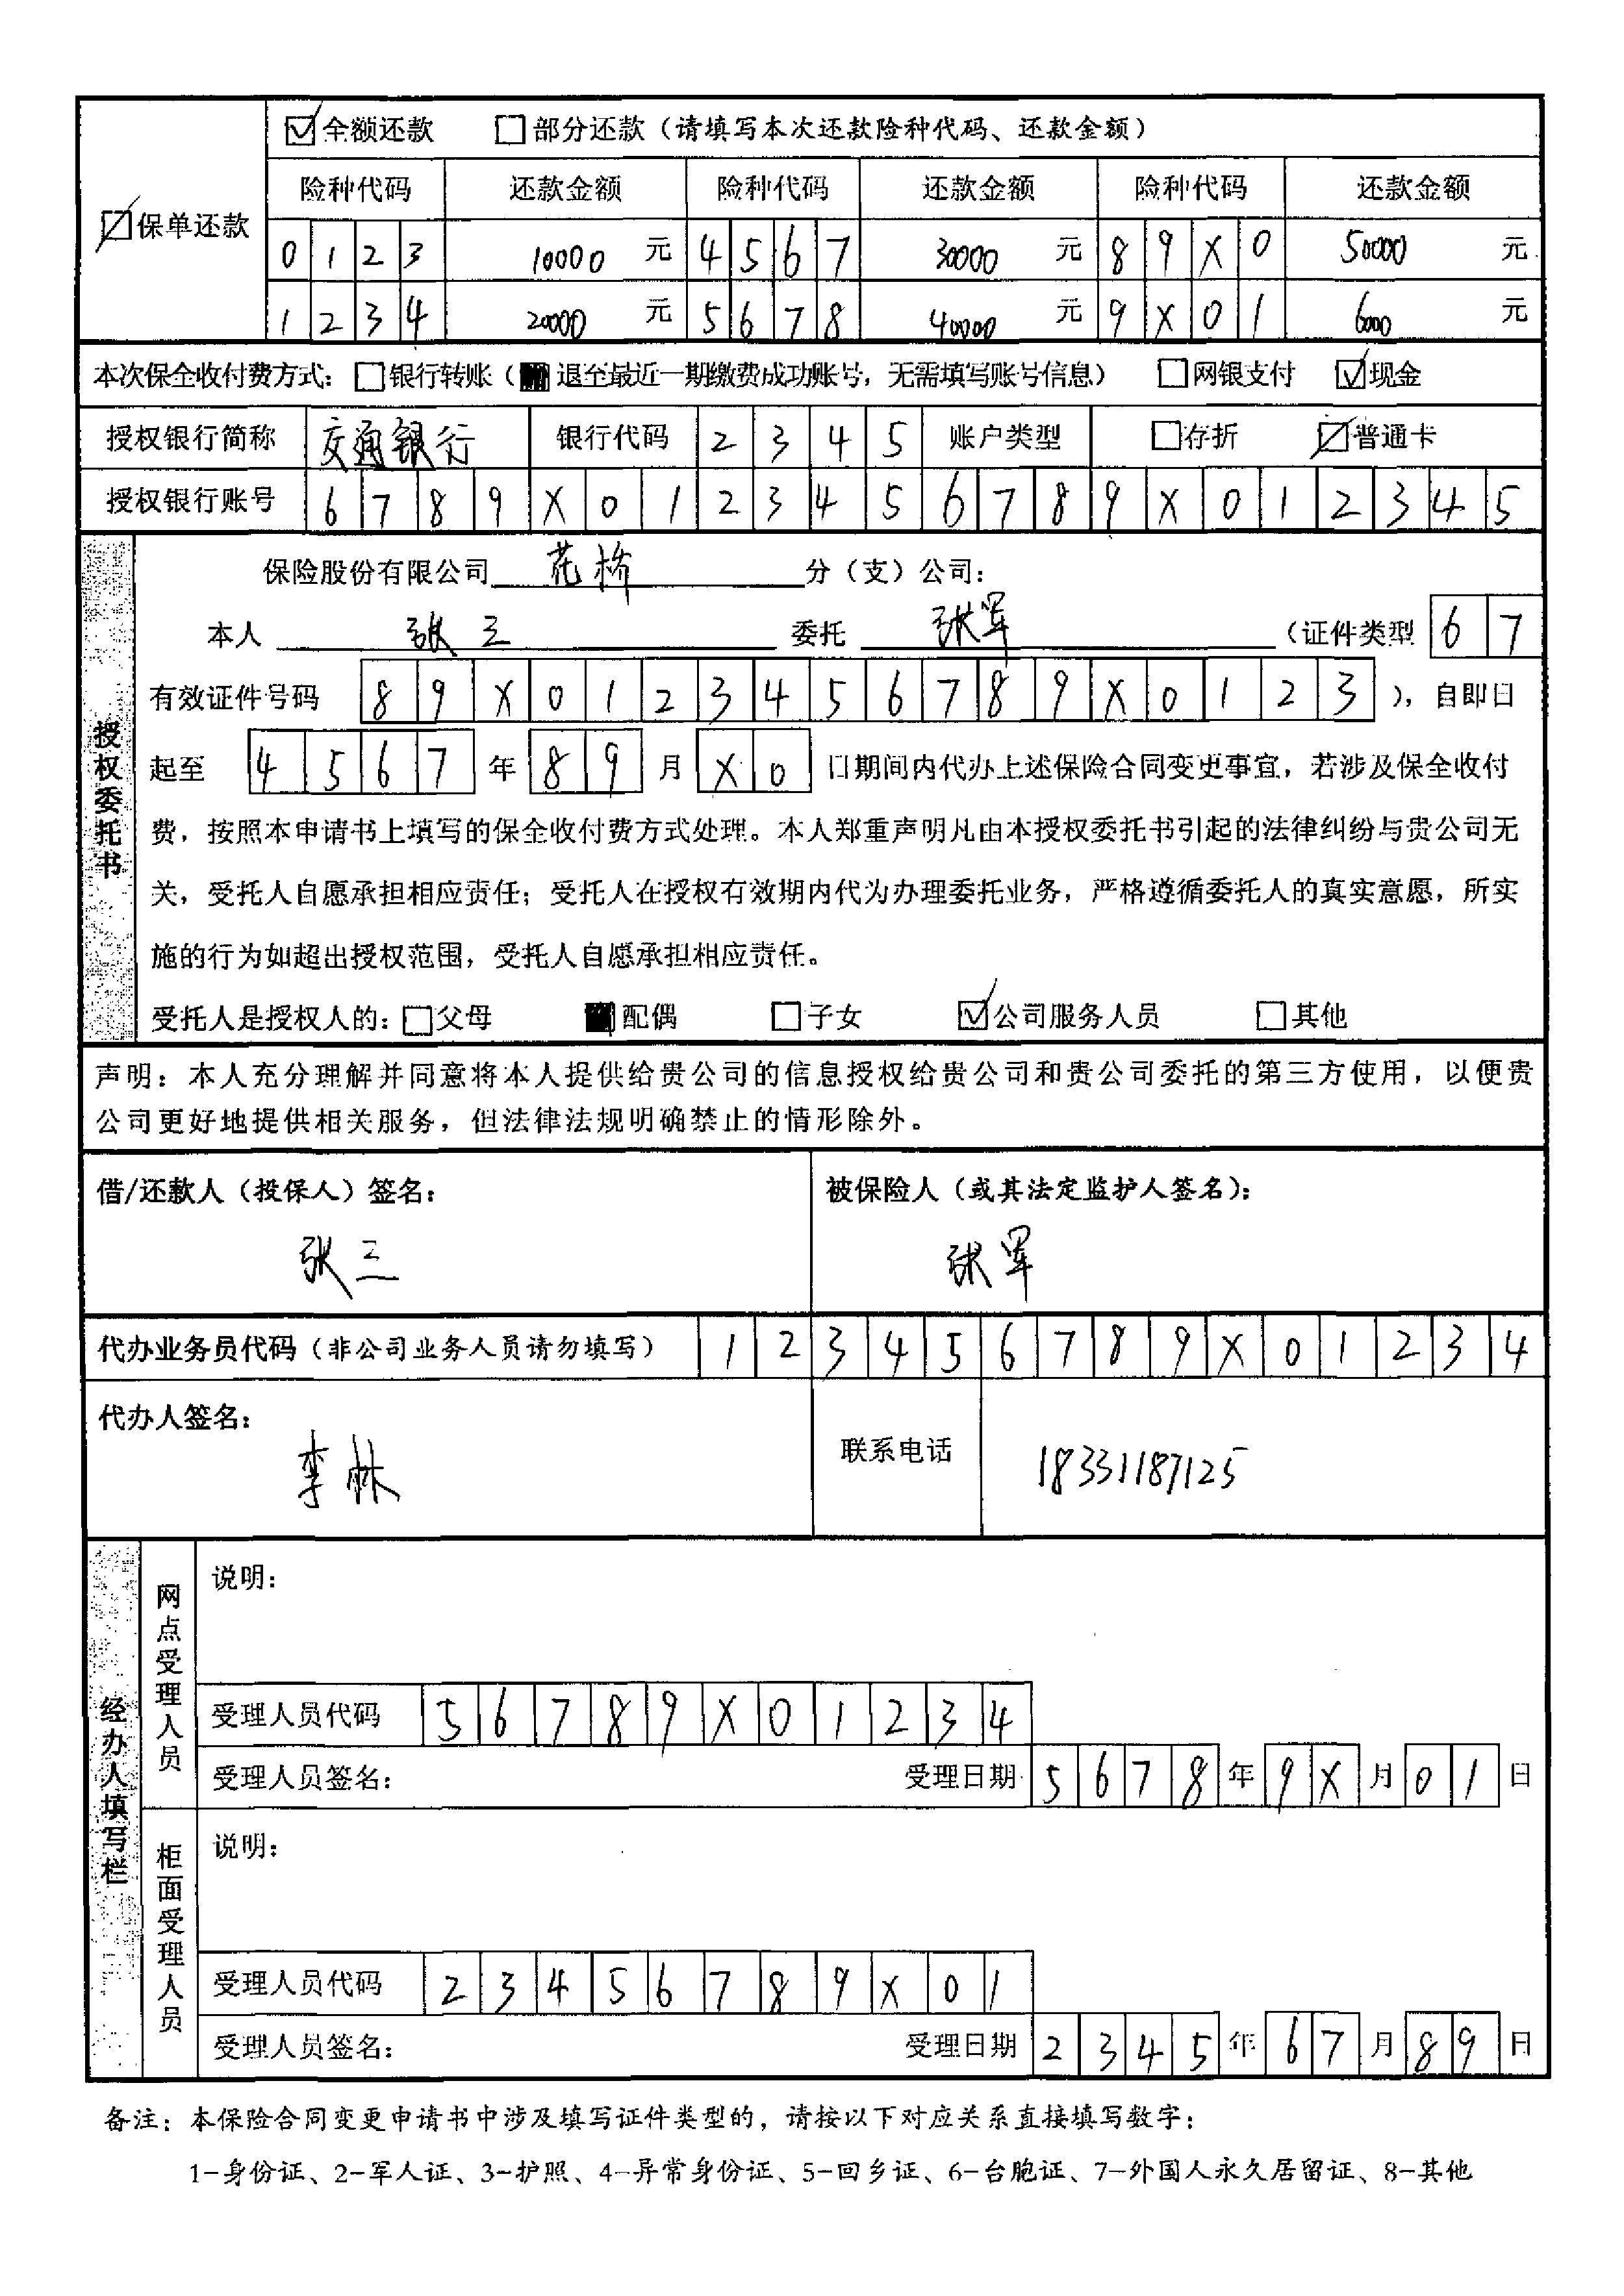 ☑全额还款 ☐部分还款（请填写本次还款险种代码、还款金额）
险种代码 还款金额 险种代码 还款金额 险种代码 还款金额
☑保单还款
0123 10000 元 4567 30000 元 89X0 50000 元
1234 20000 元 5678 40000 元 9X01 6000 元
本次保全收付费方式：☐银行转账（■退至最近一期缴费成功账号，无需填写账号信息） ☐网银支付 ☑现金
授权银行简称 交通银行 银行代码 2345 账户类型 ☐存折 ☑普通卡
授权银行账号 6789X0123456789X012345
保险股份有限公司 花桥 分（支）公司：
本人 张三 委托 张军 （证件类型 67
有效证件号码 89X0123456789X0123 ），自即日
起至 4567 年 89 月 X0 日期间内代办上述保险合同变更事宜，若涉及保全收付
费，按照本申请书上填写的保全收付费方式处理。本人郑重声明凡由本授权委托书引起的法律纠纷与贵公司无
关，受托人自愿承担相应责任；受托人在授权有效期内代为办理委托业务，严格遵循委托人的真实意愿，所实
施的行为如超出授权范围，受托人自愿承担相应责任。
受托人是授权人的：☐父母 ■配偶 ☐子女 ☑公司服务人员 ☐其他
授权委托书
声明：本人充分理解并同意将本人提供给贵公司的信息授权给贵公司和贵公司委托的第三方使用，以便贵
公司更好地提供相关服务，但法律法规明确禁止的情形除外。
借/还款人（投保人）签名： 被保险人（或其法定监护人签名）：
张三 张军
代办业务员代码（非公司业务人员请勿填写） 123456789X01234
代办人签名：
李林 联系电话 18331187125
经办人填写栏
网点受理人员
说明：
受理人员代码 56789X01234
受理人员签名： 受理日期 5678 年 9X 月 01 日
柜面受理人员
说明：
受理人员代码 23456789X01
受理人员签名： 受理日期 2345 年 67 月 89 日
备注：本保险合同变更申请书中涉及填写证件类型的，请按以下对应关系直接填写数字：
1-身份证、2-军人证、3-护照、4-异常身份证、5-回乡证、6-台胞证、7-外国人永久居留证、8-其他